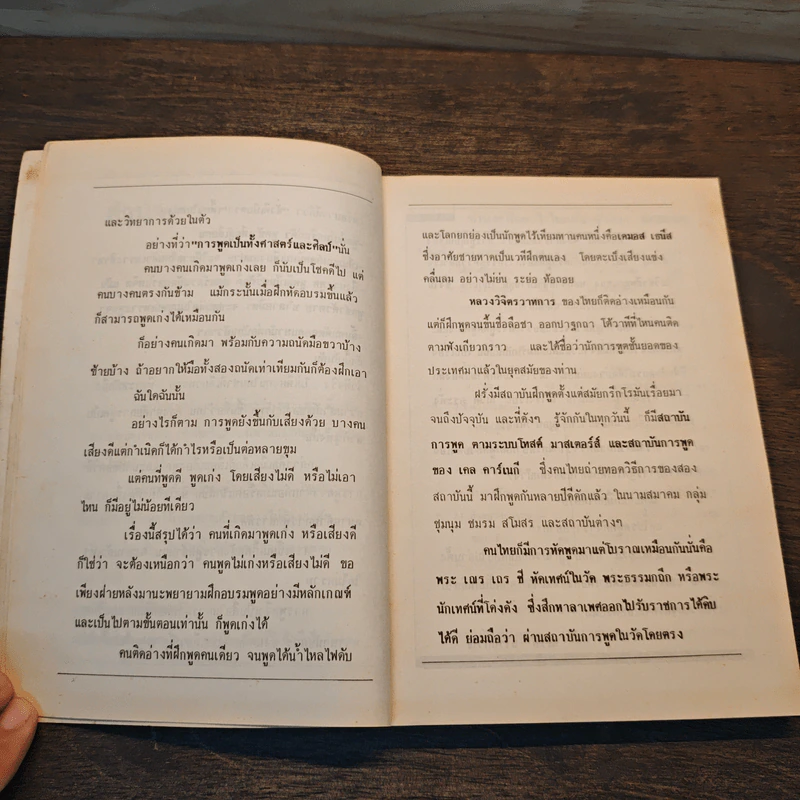 และวิทยาการด้วยในตัว
อย่างที่ว่า"การพูดเป็นทั้งศาสตร์และศิลป์"นั่น
คนบางคนเกิดมาพูดเก่งเลย ก็นับเป็นโชคดีไป แต่
คนบางคนตรงกันข้าม แม้กระนั้นเมื่อฝึกหัดอบรมขึ้นแล้ว
ก็สามารถพูดเก่งได้เหมือนกัน
ก็อย่างคนเกิดมา พร้อมกับความถนัดมือขวาบ้าง
ซ้ายบ้าง ถ้าอยากให้มือทั้งสองถนัดเท่าเทียมกันก็ต้องฝึกเอา
ฉันใดฉันนั้น
อย่างไรก็ตาม การพูดยังขึ้นกับเสียงด้วย บางคน
เสียงดีแต่กำเนิดก็ได้กำไรหรือเป็นต่อหลายขุม
แต่คนที่พูดดี พูดเก่ง โดยเสียงไม่ดี หรือไม่เอา
ไหน ก็มีอยู่ไม่น้อยทีเดียว
เรื่องนี้สรุปได้ว่า คนที่เกิดมาพูดเก่ง หรือเสียงดี
ก็ใช่ว่า จะต้องเหนือกว่า คนพูดไม่เก่งหรือเสียงไม่ดี ขอ
เพียงฝ่ายหลังมานะพยายามฝึกอบรมพูดอย่างมีหลักเกณฑ์
และเป็นไปตามขั้นตอนเท่านั้น ก็พูดเก่งได้
คนติดอ่างที่ฝึกพูดคนเดียว จนพูดได้น้ำไหลไฟดับ
และโลกยกย่องเป็นนักพูดไร้เทียมทานคนหนึ่งคือเดมอส เธนีส
ซึ่งอาศัยชายหาดเป็นเวทีฝึกตนเอง โดยตะเบ็งเสียงแข่ง
คลื่นลม อย่างไม่ย่น ระย่อ ท้อถอย
หลวงวิจิตรวาทการ ของไทยก็ติดอ่างเหมือนกัน
แต่ก็ฝึกพูดจนขึ้นชื่อลือชา ออกปาฐกถา โต้วาทีที่ไหนคนติด
ตามฟังเกียวกราว และได้ชื่อว่านักการทูตชั้นยอดของ
ประเทศมาแล้วในยุคสมัยของท่าน
ฝรั่งมีสถาบันฝึกพูดตั้งแต่สมัยกรีกโรมันเรื่อยมา
จนถึงปัจจุบัน และที่ดังๆ รู้จักกันในทุกวันนี้ ก็มีสถาบัน
การพูด ตามระบบโทสต์ มาสเตอร์ส์ และสถาบันการพูด
ของ เดล คาร์เนกี ซึ่งคนไทยถ่ายทอดวิธีการของสอง
สถาบันนี้ มาฝึกพูดกันหลายปีดีดักแล้ว ในนามสมาคม กลุ่ม
ชุมนุม ชมรม สโมสร และสถาบันต่างๆ
คนไทยก็มีการหัดพูดมาแต่โบราณเหมือนกันนั่นคือ
พระ เณร เถร ชี หัดเทศน์ในวัด พระธรรมกถึก หรือพระ
นักเทศน์ที่โด่งดัง ซึ่งสึกหาลาเพศออกไปรับราชการได้ดิบ
ได้ดี ย่อมถือว่า ผ่านสถาบันการพูดในวัดโดยตรง